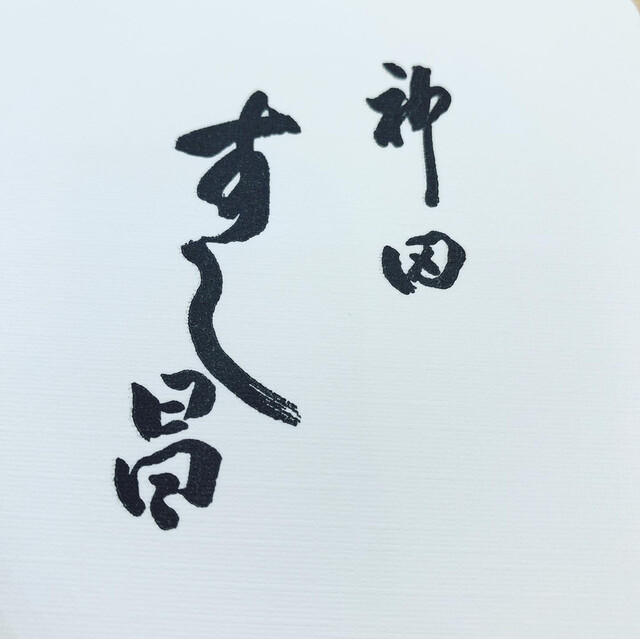 神田
すし昌